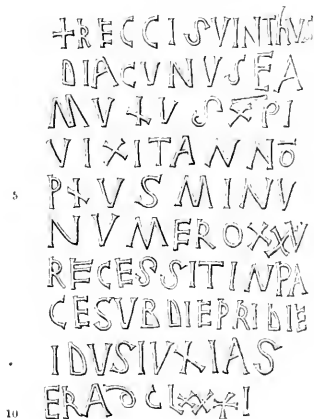 +RECCISVINTHVS
DIACVNVSFA
MVLV S X̅P̅I
VIXITANNO̅
5 PLVSMINV
NVMEROXXV
RECESSITINPA
CESVBDIEPRIDIE
IDVSIVLIAS
10 ERA